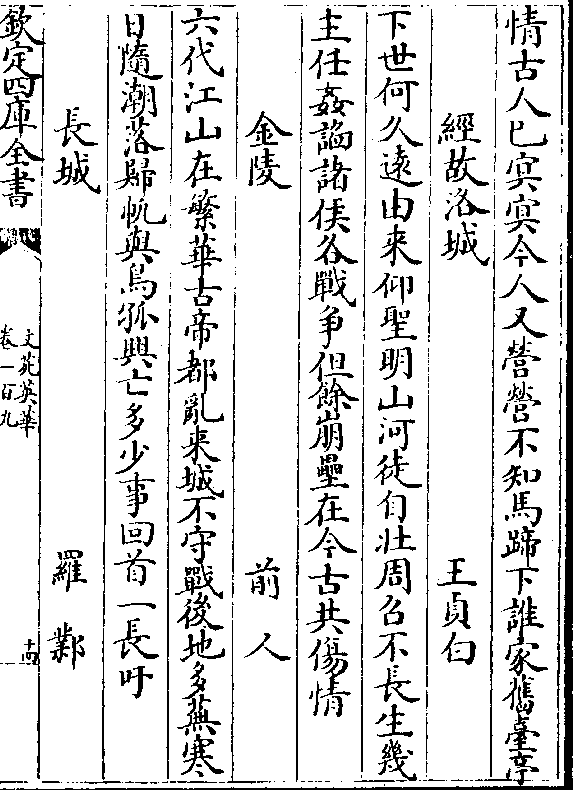 情古人已冥冥今人又營營不知馬蹄下誰家舊臺亭
經故洛城 王貞白
下世何久遠由來仰聖明山河徒自壯周召不長生幾
主任姦謟諸侯各戰爭但餘崩壘在今古共傷情
金陵 前人
六代江山在繁華古帝都亂来城不守戰後地多蕪寒
日隨潮落歸帆與鳥孤興亡多少事回首一長吁
長城 羅鄴
欽定四庫全書
文苑英華
卷一百九
十四